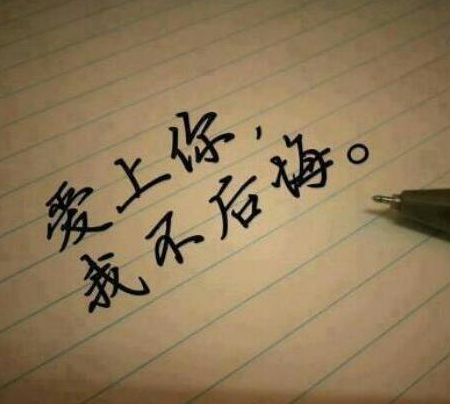 爱上你,
我不后悔。